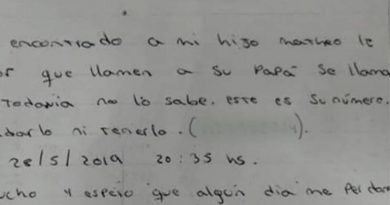 encontrado a mi hijo matheo le
or que llamen a su papá se llama
Todavia no lo sabe. este es su número.
darlo ni tenerlo. ( ).
28/5/2019 20:35 hs.
ucho y espero que algún dia me perdon